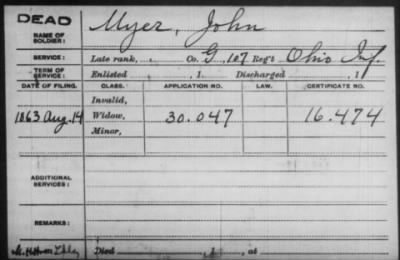 DEAD
NAME OF SOLDIER: Myer, John
SERVICE: Late rank, Co. G, 107 Reg't Ohio Inf.
TERM OF SERVICE: Enlisted , 1 . Discharged , 1
DATE OF FILING. CLASS. APPLICATION NO. LAW. CERTIFICATE NO.
Invalid,
1863 Aug. 14 Widow, 30.047 16.474
Minor,
ADDITIONAL SERVICES:
REMARKS:
Died , 1 , at